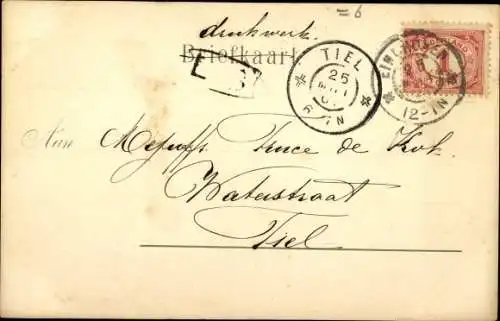 = 6
drukwerk.
Briefkaart
TIEL
25
6-7N
EINDHOVEN
12-1N
1
L
Aan Mejuffr. Truce de Kok.
Waterstraat
Tiel